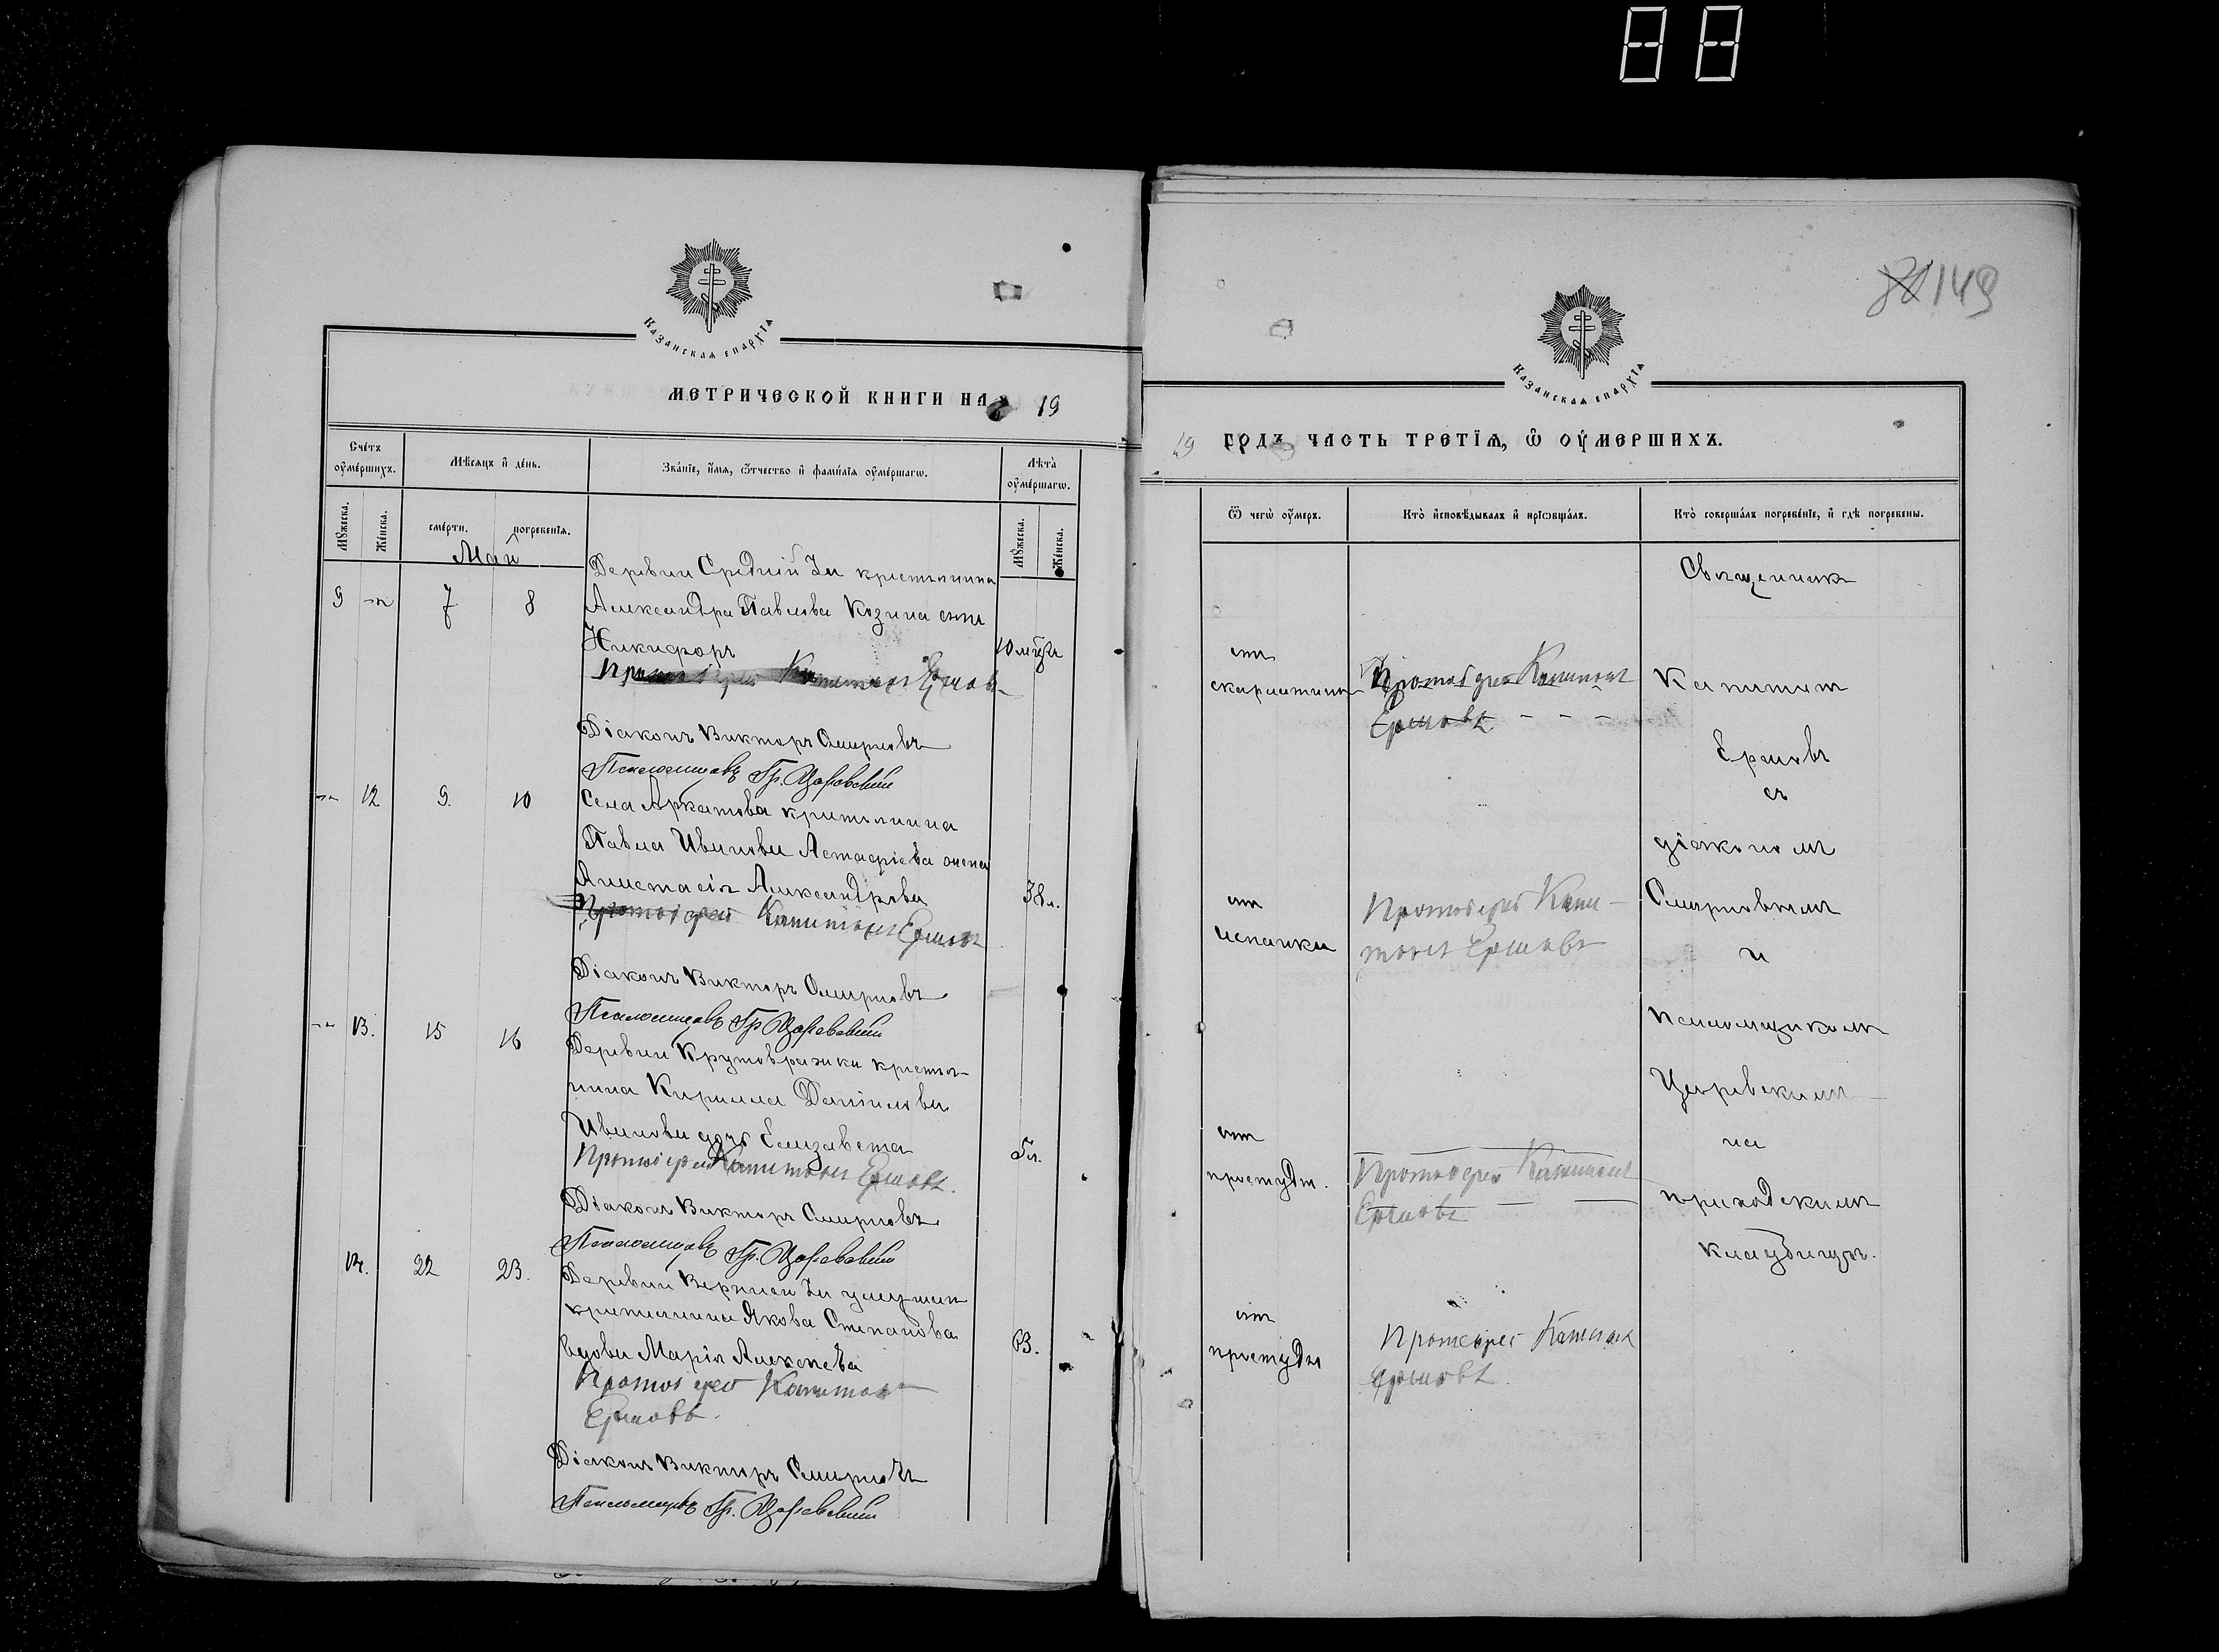 80 149
КАЗАНСКАЯ ЕПАРХІЯ
МЕТРИЧЕСКОЙ КНИГИ НА 19
Счétъ оу҆ме́ршихъ.
Мѣ́сяцъ и҆ де́нь.
Зва́нїе, и҆́мя, ѻ҆́тчество и҆ фами́лїя оу҆ме́ршагѡ.
Лѣта̀ оу҆ме́ршагѡ.
Мꙋ́жеска. Же́нска.
сме́рти. погребе́нїя.
Мꙋ́жеска. Же́нска.
Май
Деревни Средній Іи крестьянина
9 7 8 Александра Павлова Козина сынъ
Никифоръ 10 м-цъ
Протоіерей Капитонъ Ершовъ
Діаконъ Викторъ Смирновъ
Псаломщикъ Гр. Царевскій
12 9. 10 Села Аркатова крестьянина
Павла Иванова Астафіева жена
Анастасія Александрова 38 л.
Протоіерей Капитонъ Ершовъ
Діаконъ Викторъ Смирновъ
Псаломщикъ Гр. Царевскій
13. 15 16 Деревни Крутовражки крестья-
нина Кирилла Даніилова
Иванова дочь Елизавета 5 л.
Протоіерей Капитонъ Ершовъ.
Діаконъ Викторъ Смирновъ
Псаломщикъ Гр. Царевскій
14. 22 23. Деревни Верхней Іи умершаго
крестьянина Якова Степанова
вдова Марія Алексеева 63.
Протоіерей Капитонъ
Ершовъ.
Діаконъ Викторъ Смирновъ
Псаломщикъ Гр. Царевскій
КАЗАНСКАЯ ЕПАРХІЯ
19 ГОДЪ ЧАСТЬ ТРЕТЇЯ, Ѡ ОУ҆МЕРШИХЪ.
Ѿ чегѡ̀ оу҆́меръ.
Кто̀ и҆сповѣ́дывалъ и҆ прїѡбща́лъ.
Кто̀ соверша́лъ погребе́нїе, и҆ гдѣ̀ погребены.
отъ
скарлатины
Протоіерей Капитонъ
Ершовъ
отъ
испанки
Протоіерей Капи-
тонъ Ершовъ
отъ
простуды.
Протоіерей Капитонъ
Ершовъ
отъ
простуды
Протоіерей Капитонъ
Ершовъ.
Священникъ
Капитонъ
Ершовъ
съ
діакономъ
Смирновымъ
и
псаломщикомъ
Царевскимъ
на
приходскомъ
кладбищѣ.